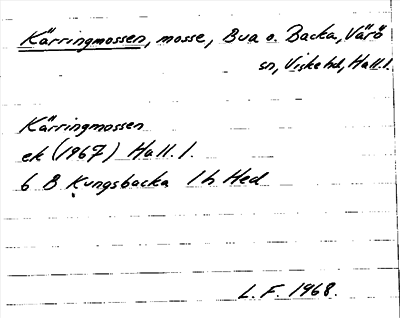 Kärringmossen, mosse, Bua o. Backa, Värö
sn, Viske hd, Hall. l.
Kärringmossen
ek (1967) Hall. l.
6 B Kungsbacka 1 h Hed
L. F. 1968.